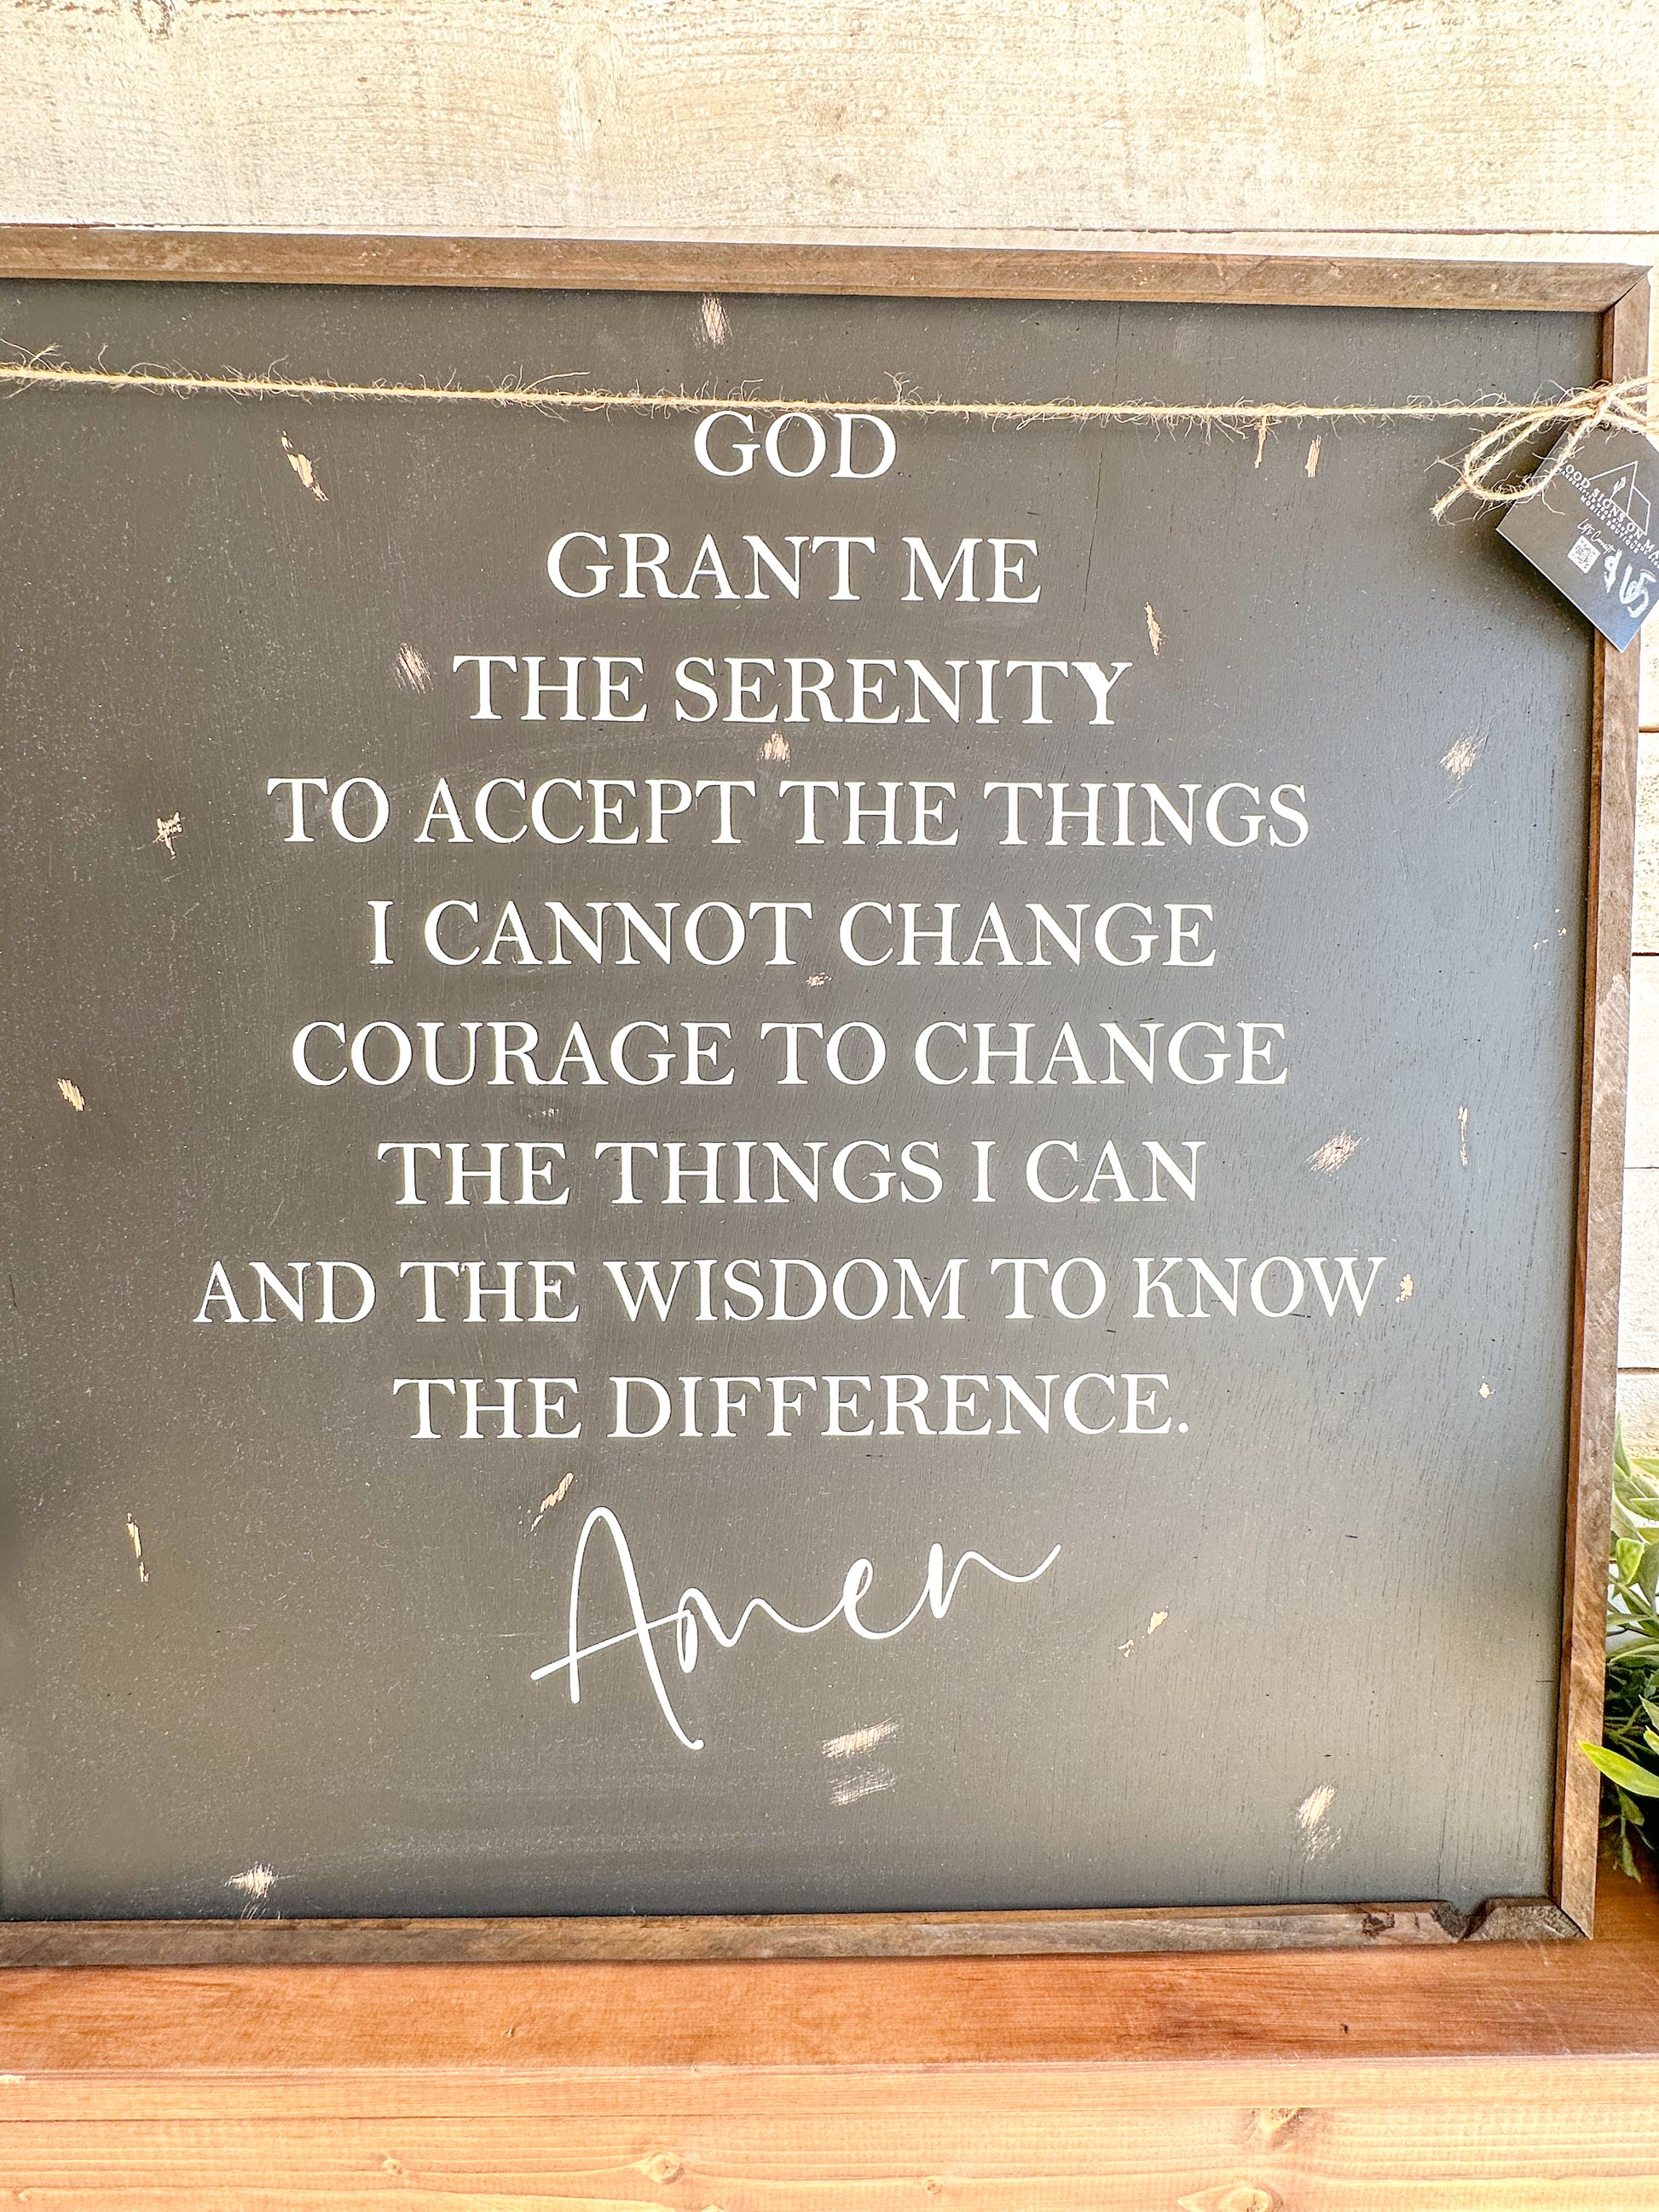 GOD
GRANT ME
THE SERENITY
TO ACCEPT THE THINGS
I CANNOT CHANGE
COURAGE TO CHANGE
THE THINGS I CAN
AND THE WISDOM TO KNOW
THE DIFFERENCE.
Amen
SIGNS ON
$65